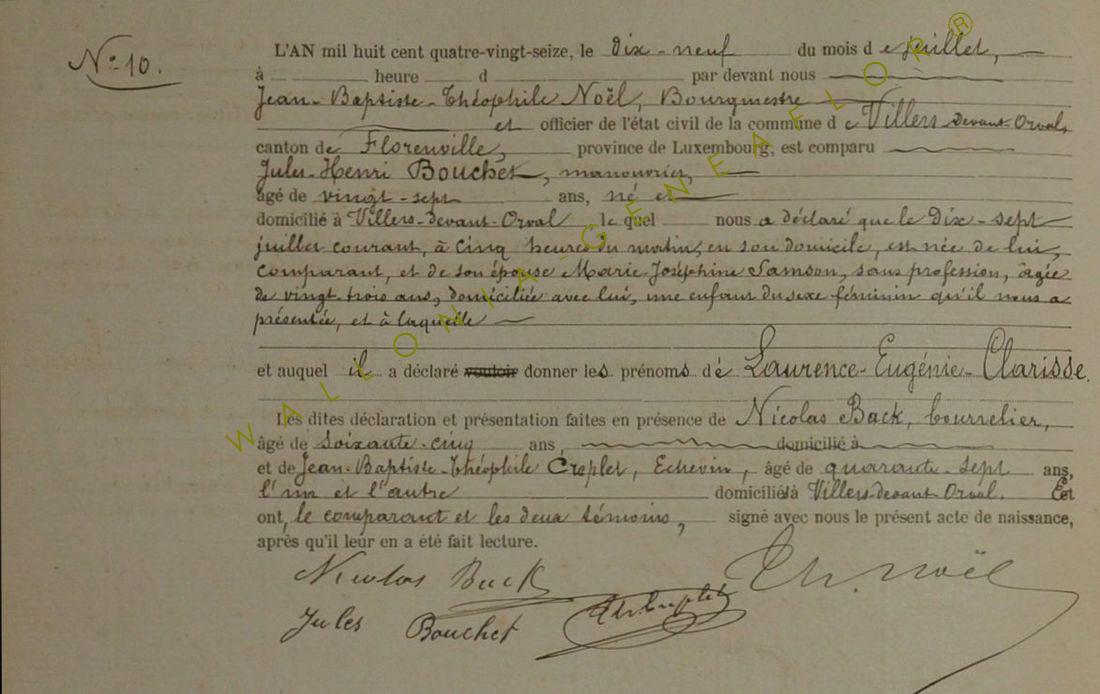 N° 10.
L'AN mil huit cent quatre-vingt-seize, le dix-neuf du mois de juillet,
à heure d par devant nous
Jean-Baptiste-Théophile Noël, Bourgmestre
et officier de l'état civil de la commune de Villers-devant-Orval,
canton de Florenville, province de Luxembourg, est comparu
Jules-Henri Bouchet, manouvrier,
âgé de vingt-sept ans, né et
domicilié à Villers-devant-Orval lequel nous a déclaré que le dix-sept
juillet courant, à cinq heures du matin, en son domicile, est née de lui,
comparant, et de son épouse Marie-Joséphine Samson, sans profession, âgée
de vingt trois ans, domiciliée avec lui, une enfant du sexe féminin qu'il nous a
présentée, et à laquelle
et auquel il a déclaré vouloir donner les prénoms de Laurence-Eugénie-Clarisse.
Les dites déclaration et présentation faites en présence de Nicolas Back, bourrelier,
âgé de soixante-cinq ans, domicilié à
et de Jean-Baptiste-Théophile Creplet, Echevin, âgé de quarante-sept ans,
l'un et l'autre domiciliés à Villers-devant-Orval. Et
ont, le comparant et les deux témoins, signé avec nous le présent acte de naissance,
après qu'il leur en a été fait lecture.
Nicolas Back
Th. Noël
Jules Bouchet
WALLONIA GENEAFLOR®